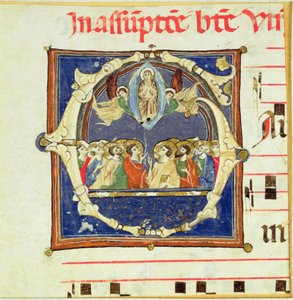 In assūptōe btē Vir